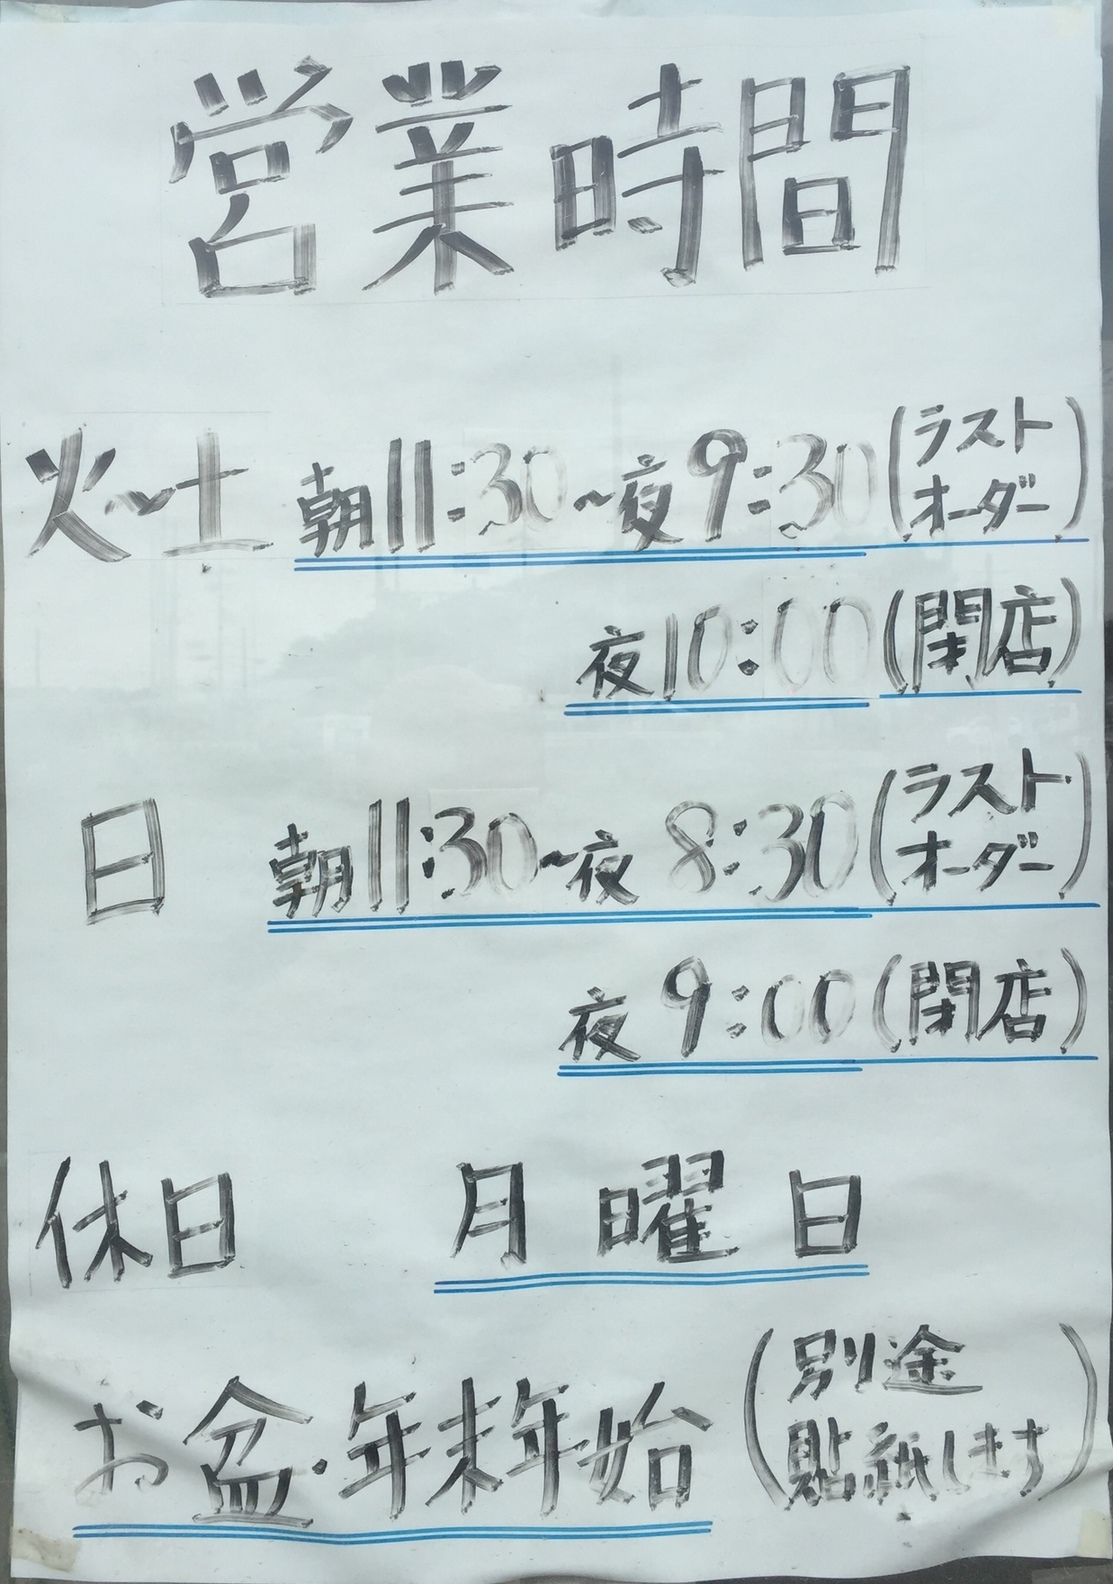 営業時間
火~土 朝11:30~夜9:30(ラストオーダー)
夜10:00(閉店)
日 朝11:30~夜8:30(ラストオーダー)
夜9:00(閉店)
休日 月曜日
お盆・年末年始(別途貼紙します)